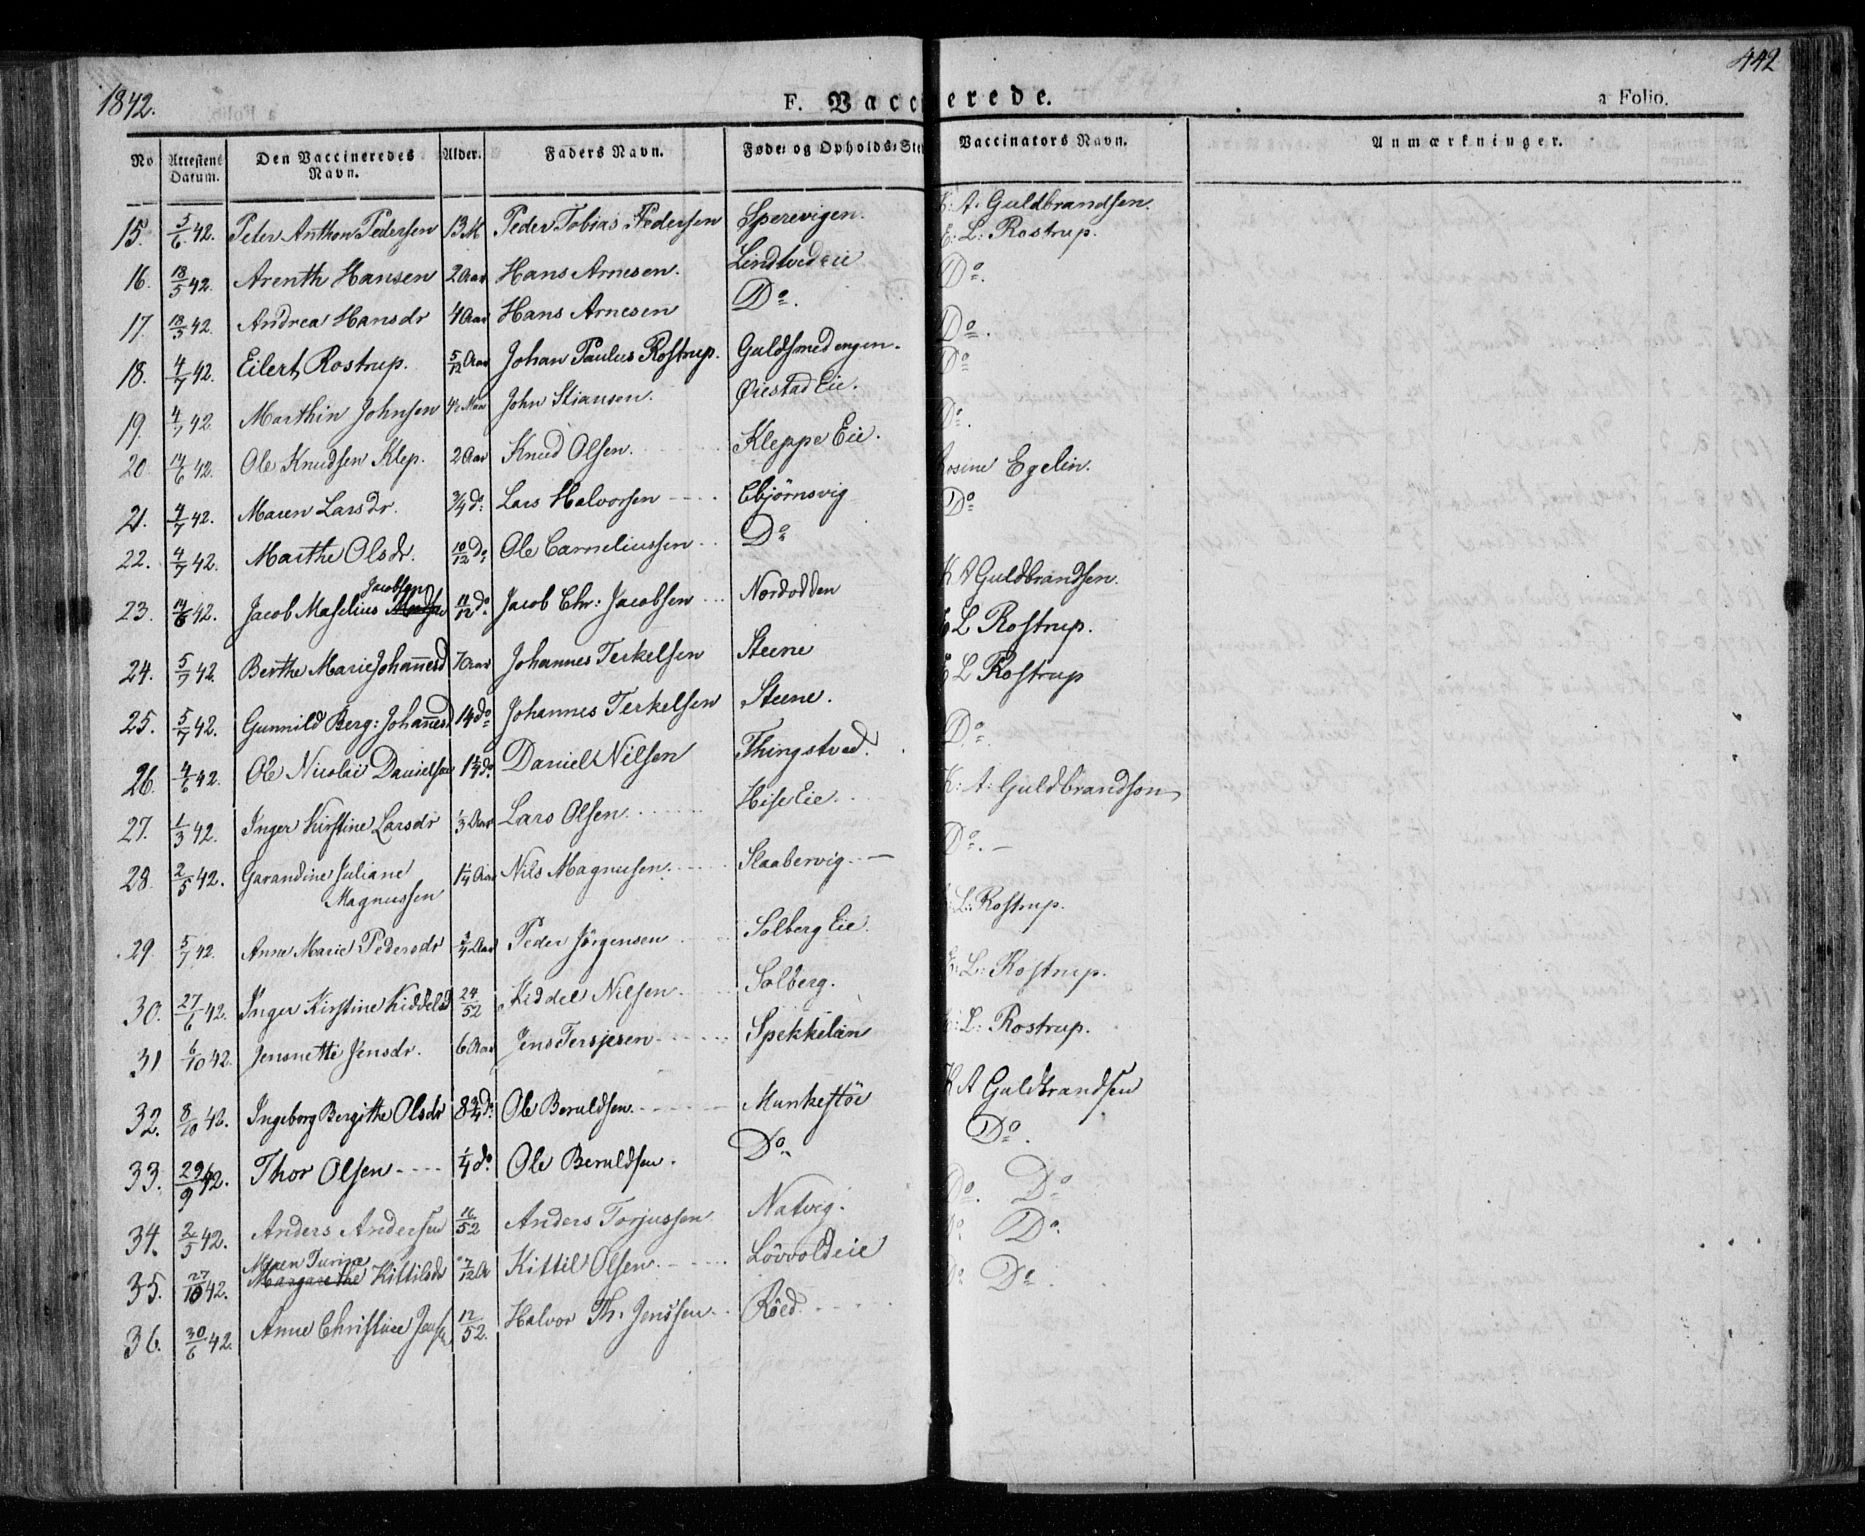 1842.
442
F. Vaccinerede.
a Folio.
No Attestens Datum. Den Vaccineredes Navn. Alder. Faders Navn. Føde- og Opholds-Sted Vaccinators Navn. Anmærkninger.
15. 5/6 42. Peter Anthon Pedersen 13 M Peder Tobias Pedersen Sperevigen. K: A. Guldbrandsen.
E: L: Rostrup.
16. 18/5 42. Arenth Hansen 2 Aar Hans Arnesen. Lindtvedeie Do.
17. 18/5 42. Andrea Hansdr 4 Aar Hans Arnesen Do. Do.
18. 4/7 42. Eilert Rostrup. 5/12 Aar Johan Paulus Rostrup. Guldsmedengen. Do
19. 4/7 42 Marthin Johnsen John Stiansen. Øiestad Eie. Do.
20 14/6 42. Ole Knudsen Klep. 2 Aar Knud Olsen. Kleppe Eie. Rosine Egelin.
21. 4/7 42. Maren Larsdr. 3/4 do: Lars Halvorsen Ebjörnsvig Do
22. 4/7 42. Marthe Olsdr. 10/12 Do Ole Corneliussen Do
23. 14/6 42. Jacob Maselius Jacobsen 11/12 do. Jacob Chr: Jacobsen Nordodden K A Guldbrandsen.
E L Rostrup.
24. 5/7 42. Berthe Marie Johannesd 7 Aar Johannes Terkelsen Steene E L Rostrup
25. 5/7 42. Gunnild Berg: Johannesd 14 do Johannes Terkelsen Steene. Do.
26. 4/6 42. Ole Nicolai Danielsen 1 1/4 do. Daniel Nilsen Thingstved. K: A: Guldbrandson
27. 1/3 42. Inger Kirstine Larsdr 1/3 Aar Lars Olsen Hise Eie. Do.
28. 2/5 42. Garandine Juliane Magnussen 1 1/4 Aar Nils Magnusen. Slaabervig E: L: Rostrup.
29. 5/7 42. Anne Marie Pedersdr 3/4 Aar Peder Jörgensen Solberg Eie. E: L: Rostrup.
30. 27/6 42. Inger Kirstine Kiddelsd 24/52 Kiddel Nilsen Solberg. E: L: Rostrup.
31 6/10 42. Jensnette Jensdr. 6 Aar Jens Tersjesen Spekkelien K A Guldbrandsen
32. 8/10 42. Ingeborg Bergithe Olsdr 8 3/4 do. Ole Beruldsen. Munkestöe Do.
33. 29/9 42. Thor Olsen 1/4 do. Ole Beruldsen. Do. Do. Do
34. 2/5 42. Anders Andersen 16/52 Anders Torjussen Natvig. Do Do.
35. 27/10 42. Maren Turine Margarethe Kittilsdr 7/12 A Kittil Olsen. Lövvoldeie Do Do.
36. 30/6 42. Anne Christine 12/52. Halvor Th. Jenssen Röed.